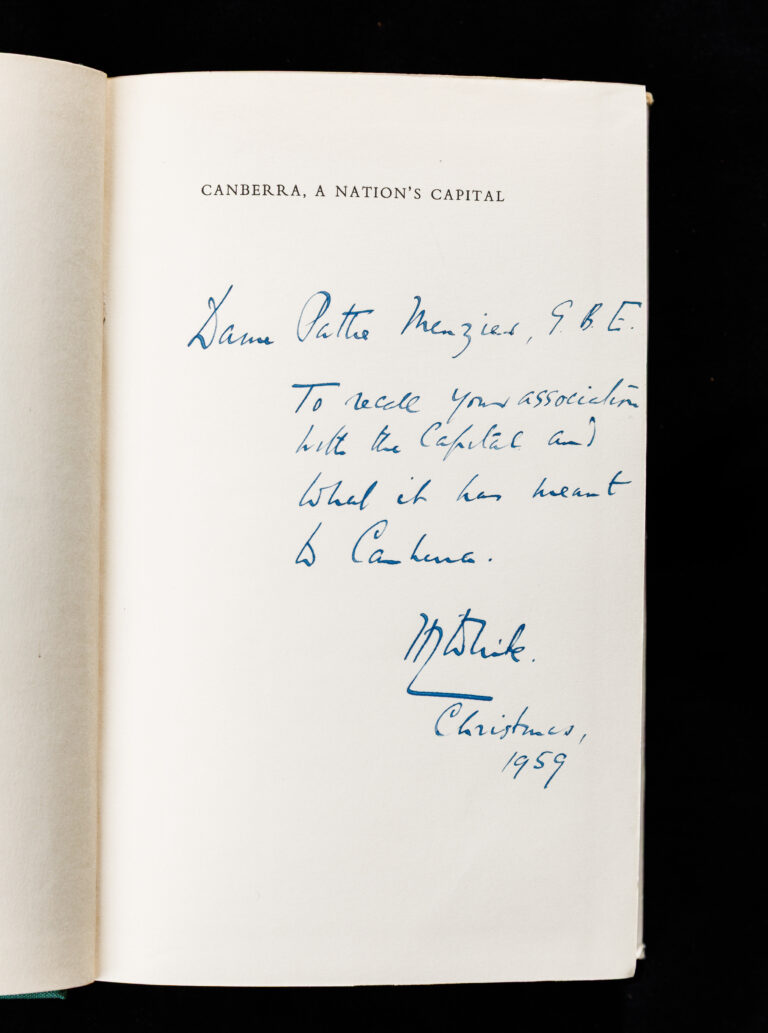 CANBERRA, A NATION'S CAPITAL
Dame Pattie Menzies, G.B.E.
To recall your association
with the Capital and
what it has meant
to Canberra.
HLWhite.
Christmas,
1959